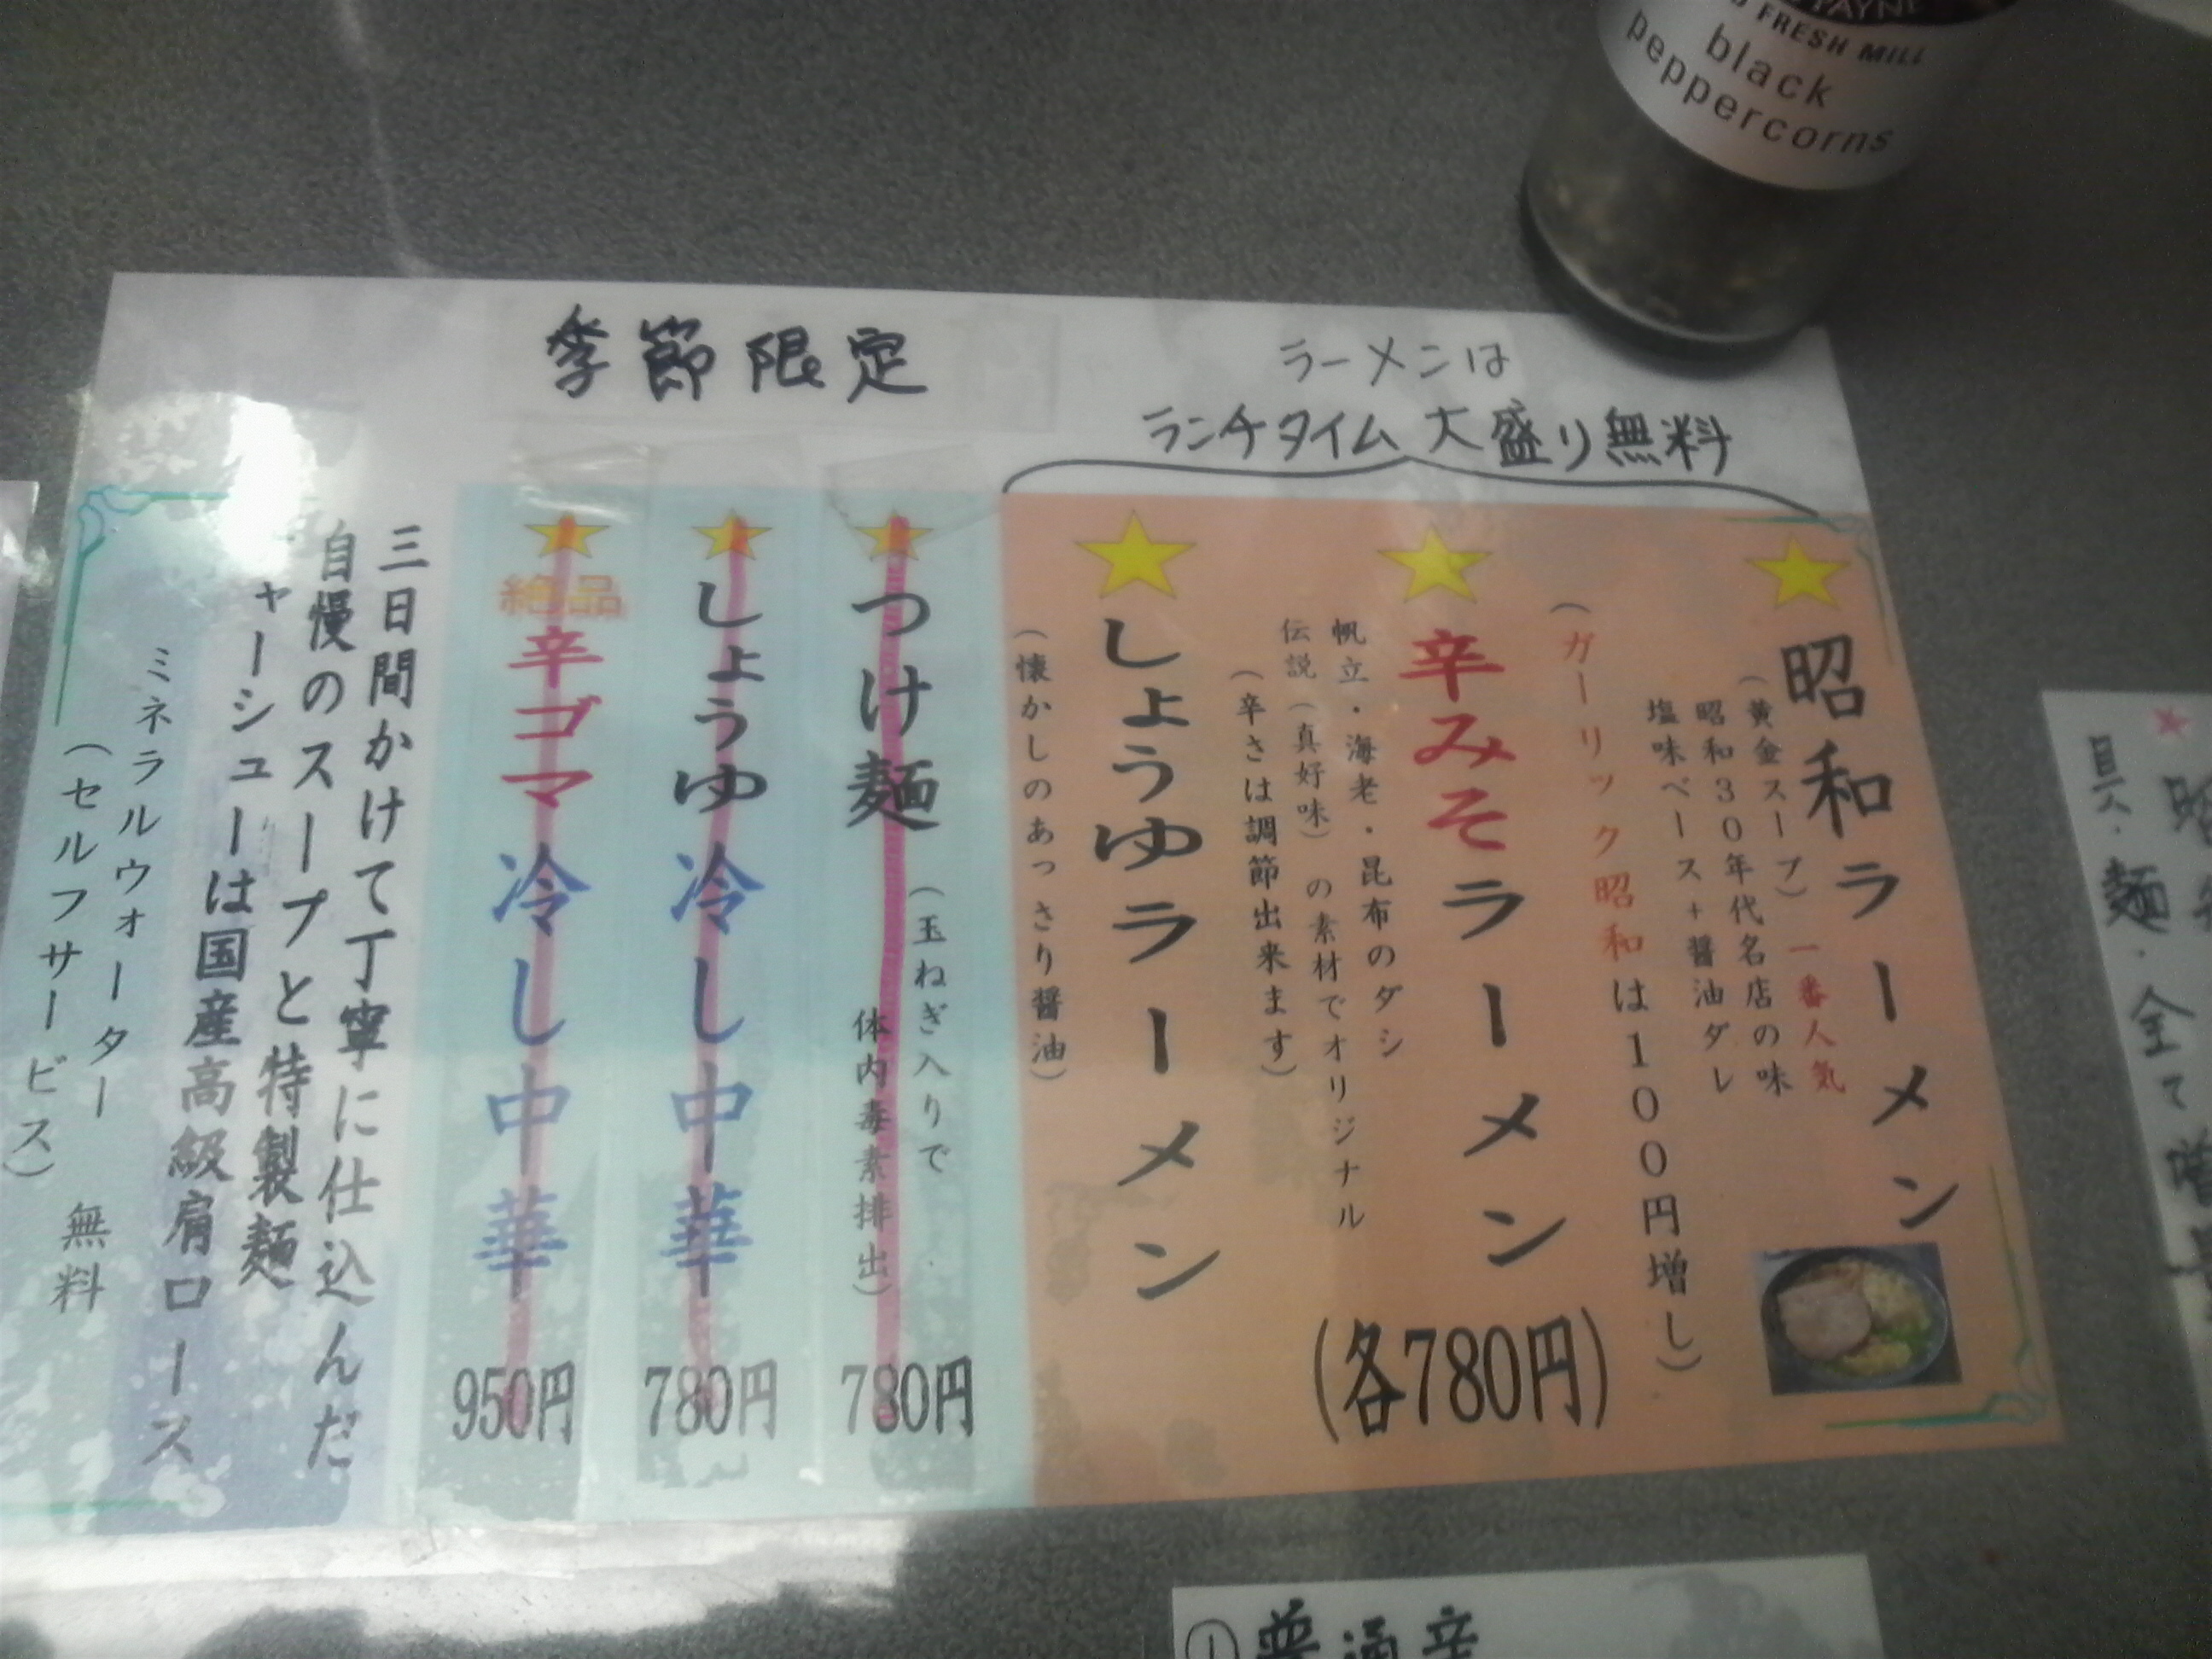 FRESH MILL
black
peppercorns
季節限定
ラーメンは
ランチタイム 大盛り無料
昭和ラーメン
(黄金スープ) 一番人気
昭和30年代名店の味
塩味ベース+醤油ダレ
(ガーリック昭和は100円増し)
辛みそラーメン
帆立・海老・昆布のダシ
伝説(真好味)の素材でオリジナル
(辛さは調節出来ます)
しょうゆラーメン
(懐かしのあっさり醤油)
(各780円)
つけ麺
(玉ねぎ入りで
体内毒素排出)
780円
しょうゆ冷し中華
780円
絶品
辛ゴマ冷し中華
950円
三日間かけて丁寧に仕込んだ
自慢のスープと特製麺
ャーシューは国産高級肩ロース
ミネラルウォーター
(セルフサービス) 無料
具・麺・全て
①普通辛